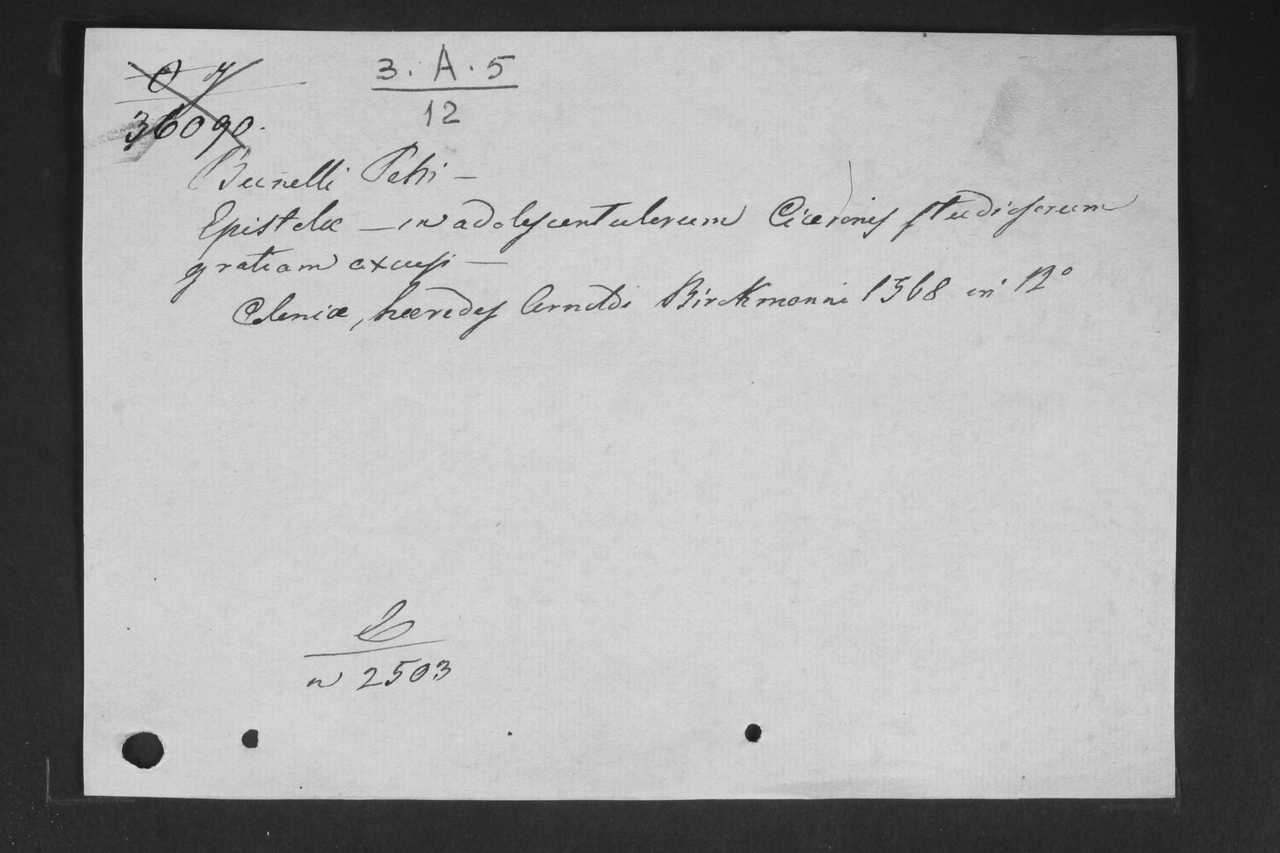 O y
36090.
3. A. 5
12
Bunelli Petri —
Epistolæ — in adolescentulorum Ciceronis studiosorum
gratiam excusi —
Coloniæ, hæredes Arnoldi Birckmanni 1568 in 12°
C
n 2503